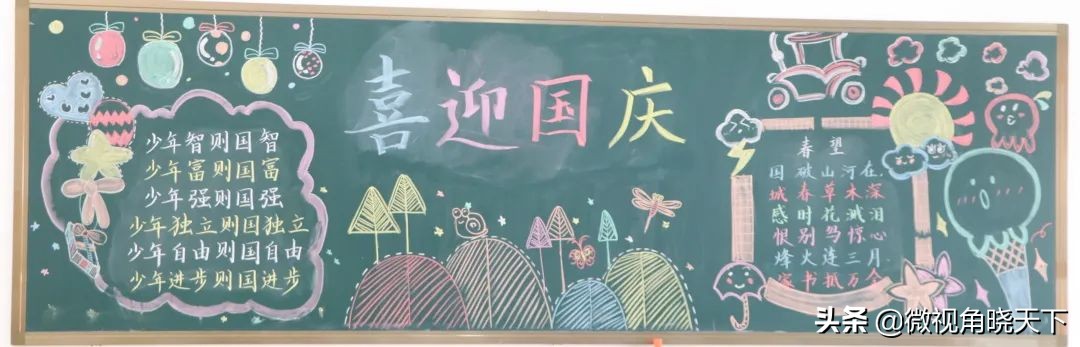 喜迎国庆
少年智则国智
少年富则国富
少年强则国强
少年独立则国独立
少年自由则国自由
少年进步则国进步
春望
国破山河在.
城春草木深
感时花溅泪
恨别鸟惊心
烽火连三月
家书抵万金
头条 @微视角晓天下